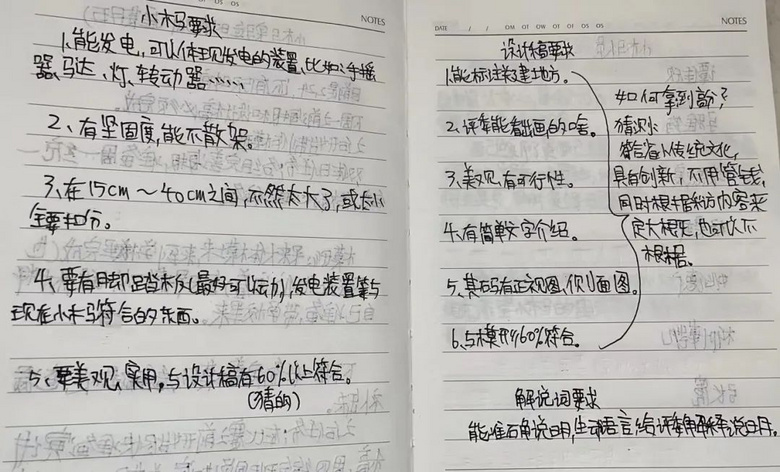 NOTES
小木马要求
1.能发电,可以体现发电的装置,比如:手摇
器、马达、灯、转动器……
2、有坚固度,能不散架。
3、在15cm~40cm之间,不然太大了,或太小
全要扣分。
4、要有脚踏木板(最好可以动),发电装置等与
现在小木马符合的东西。
5、要美观、实用,与设计稿有60%以上符合。
(猜的)
DATE / /
NOTES
设计稿要求
1.能标注关键地方。
2、评委能看出画的啥。
3、美观、有可行性。
4、有简单文字介绍。
5、其码有正视图、侧面图。
6、与模形60%符合。
如何拿到高分?
猜测:
符合传统文化,
具有创新,不用管钱,
同时根据我方内容来
定大概况,也可以不
根据。
解说词要求
能准确说明,生动语言,给评委解释说明。